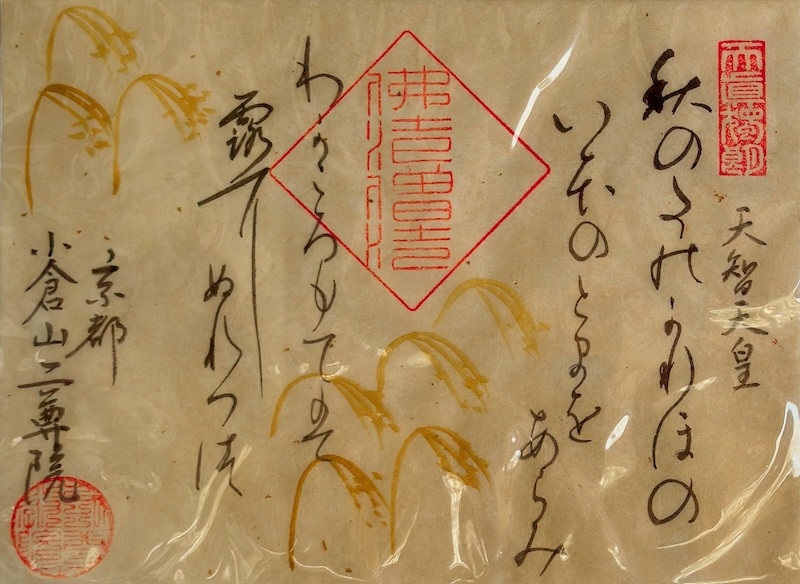 天智天皇
秋のたのかりほの
いほのとまを
あらみ
わかころもては
露に
ぬれつつ
京都
小倉山二尊院